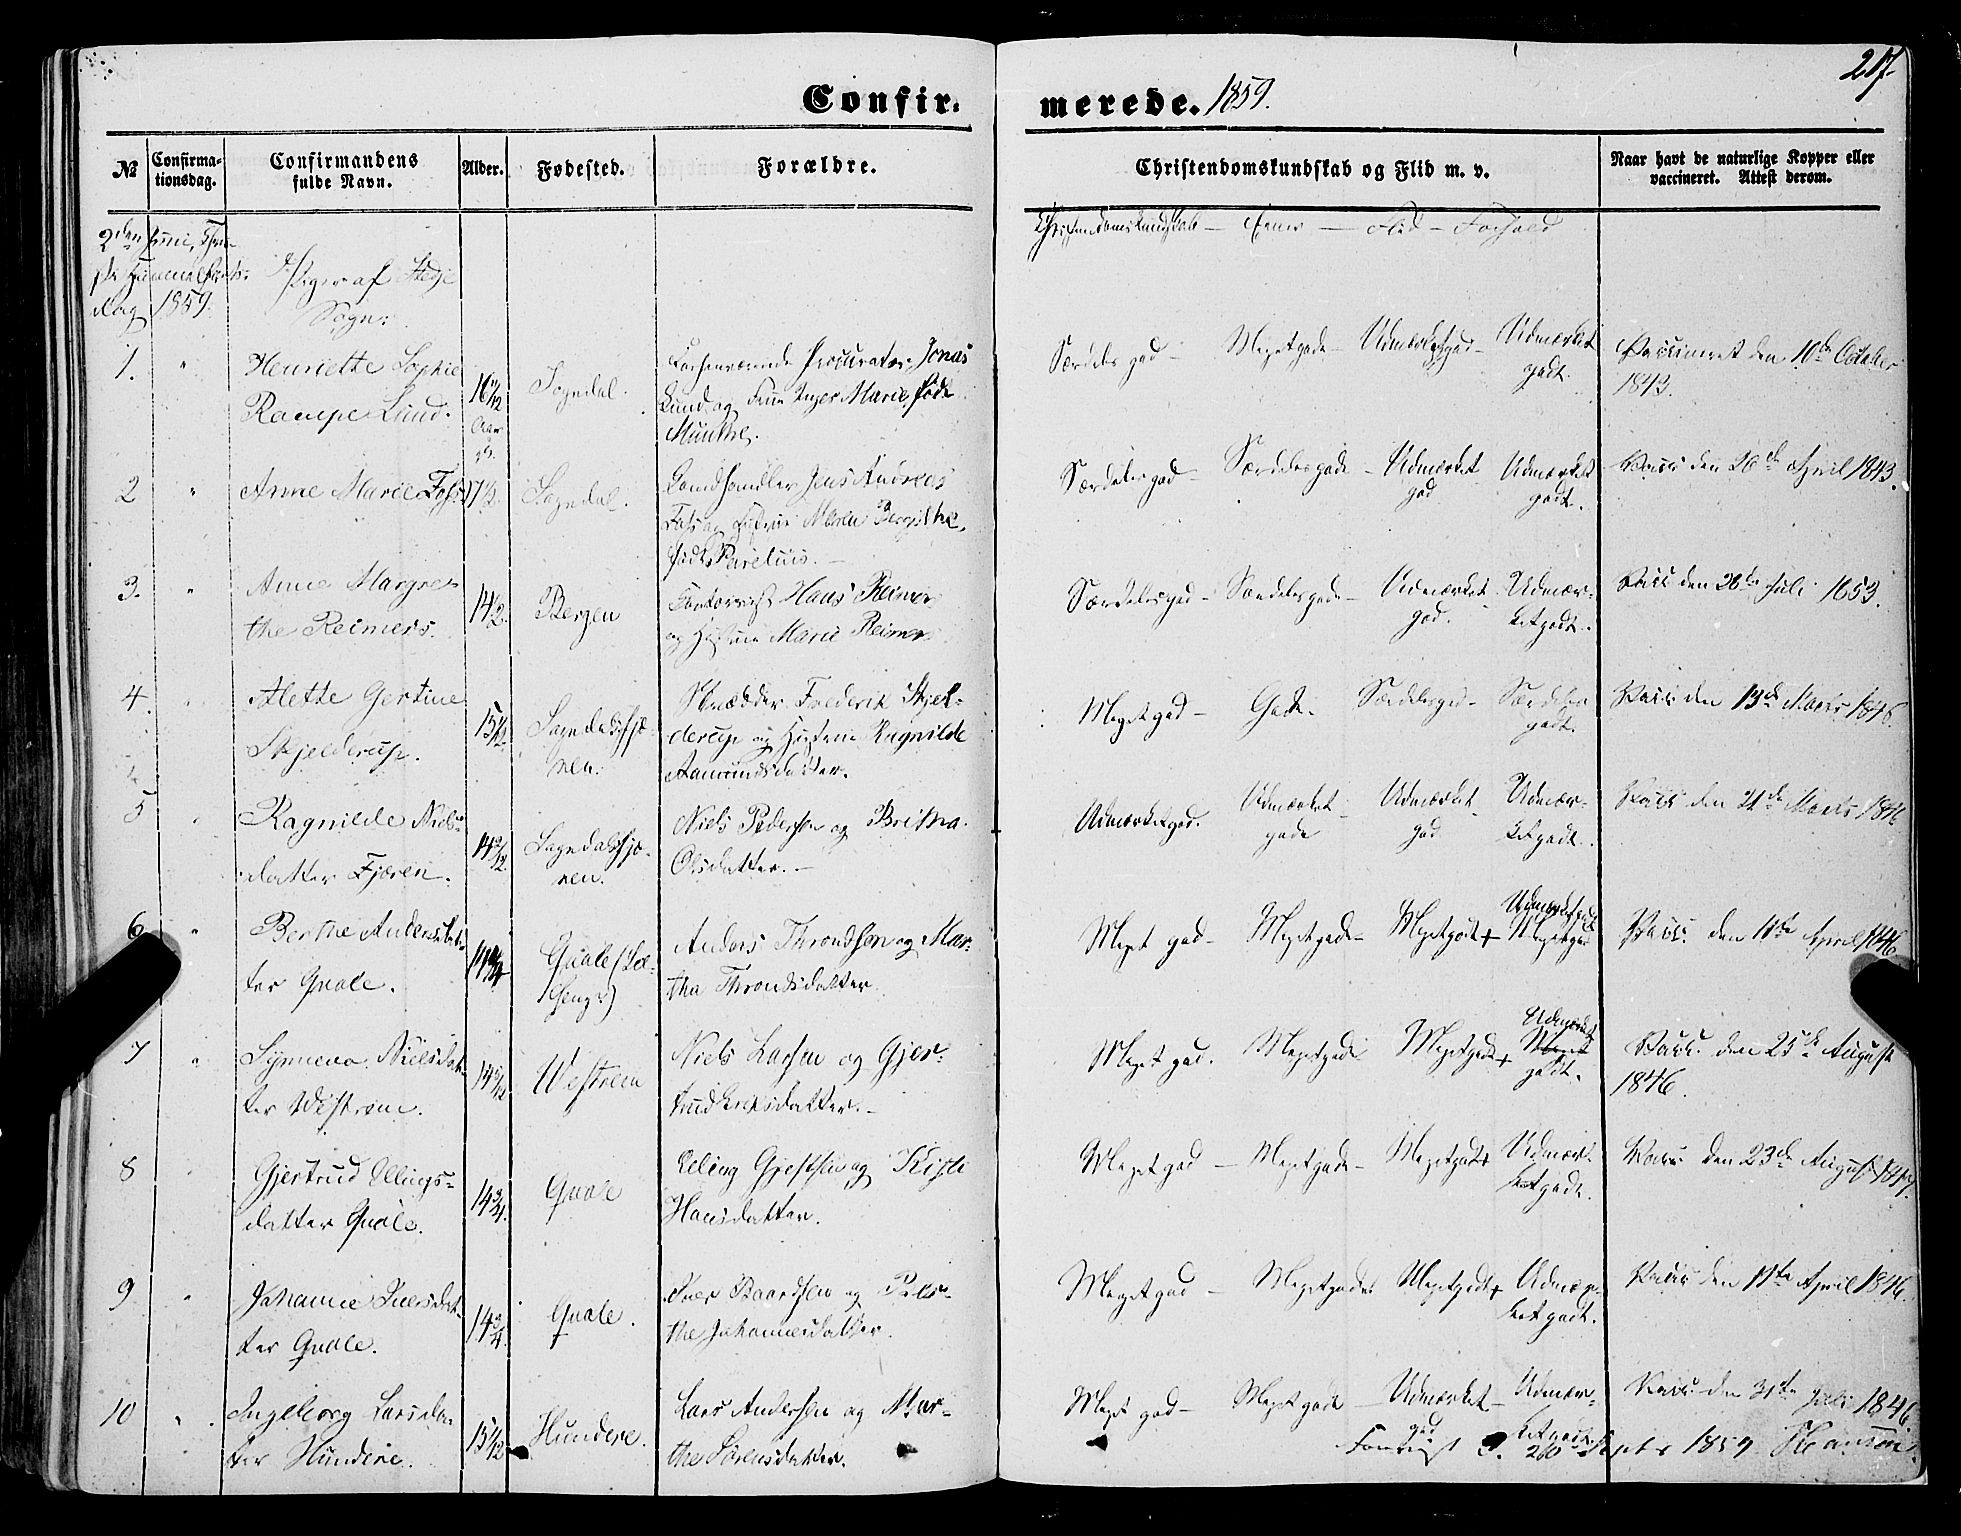 217.
Confir- merede. 1859.
No Confirmationsdag. Confirmandens fulde Navn. Alder. Fødested. Forældre. Christendomskundskab og Flid m. v. Naar havt de naturlige Kopper eller vaccineret. Attest derom.
2den Juni, Christi Himmelfarts-
dag 1859.
Piger af Stedje
Sogn:
Christendomskundskab — Evner — Flid — Forhold
1. " Henriette Sophie
Rampe Lund.
16 1/12
Aar
Sogndal.
Procurator Jonas
Lund og Inger Marie, født
Munthe.
Særdeles god — Megetgode — Udmærketgod — Udmærket
godt.
Vaccineret den 10de October
1843.
2 " Anne Marie Fahs 17 1/2 Sogndal.
Landhandler Jens Andreas
og Hustru Maren Bergithe,
født
Særdelesgod — Særdelesgode — Udmærket
god
Udmærket
godt.
Vacc. den 26de April 1843.
3. " Anne Margre-
the Reimers.
14 1/2.
Bergen
Hans Reimers
og Hustru Marie Reimers
Særdelesgod — Særdelesgode — Udmærket
god.
Udmær-
ketgodt.
Vacc. den 28de Juli 1853.
4. " Alette Gertine
Skjelderup.
15 1/12
Sogndalsfjæ-
ren.
Skrædder Frederik Skjel-
derup og Hustru Ragnilde
Aamundsdatter.
Megetgod — Gode. Særdelesgod — Særdeles
godt.
Vacc. den 13de Marts 1846.
5 " Ragnilde Niels-
datter Fjæren.
14 9/12.
Sogndalsfjæ-
ren.
Niels Pedersen og Britha
Olsdatter. —
Udmærketgod. Udmærket
gode
Udmærket
god
Udmær-
ketgodt.
Vacc. den 21de Marts 1846
6 " Berthe Andersdat-
ter Qvale.
14 3/4
Qvale
Anders Throndsen og Mar-
tha Throndsdatter
Meget god — Megetgode — Megetgodt + Udmærketgodt
Megetgodt
Vacc. den 11te April 1846
7 " Synneva Nielsdat-
ter Westrem.
14 9/12
Westrem
Niels Larsen og Gjer-
trud Eriksdatter. —
Meget god. Megetgode Megetgodt + Udmærket
Meget
godt.
Vacc. den 25de August
1846.
8 " Gjertrud Ellings-
datter Qvale.
14 3/4.
Qvale
Elling Gjestsen og Kisti
Hansdatter.
Megetgod — Megetgode — Megetgodt Udmær-
ketgodt.
Vacc. den 23de August 1847.
9 " Johanne Iversdat-
ter Qvale.
14 3/4.
Qvale.
Iver Baardsen og
Johannesdatter.
Megetgod — Megetgode Megetgodt + Udmær-
ketgodt.
Vacc. den 11te April 1846.
10 " Ingeborg Larsdat-
ter Hundere.
15 1/12
Hundere.
Lars Andersen og Mar-
the Sørensdatter.
Meget god — Megetgode — Udmærket
god
Udmær-
ketgodt
Vacc. den 31te Juli 1846.
26 Septbr 1859